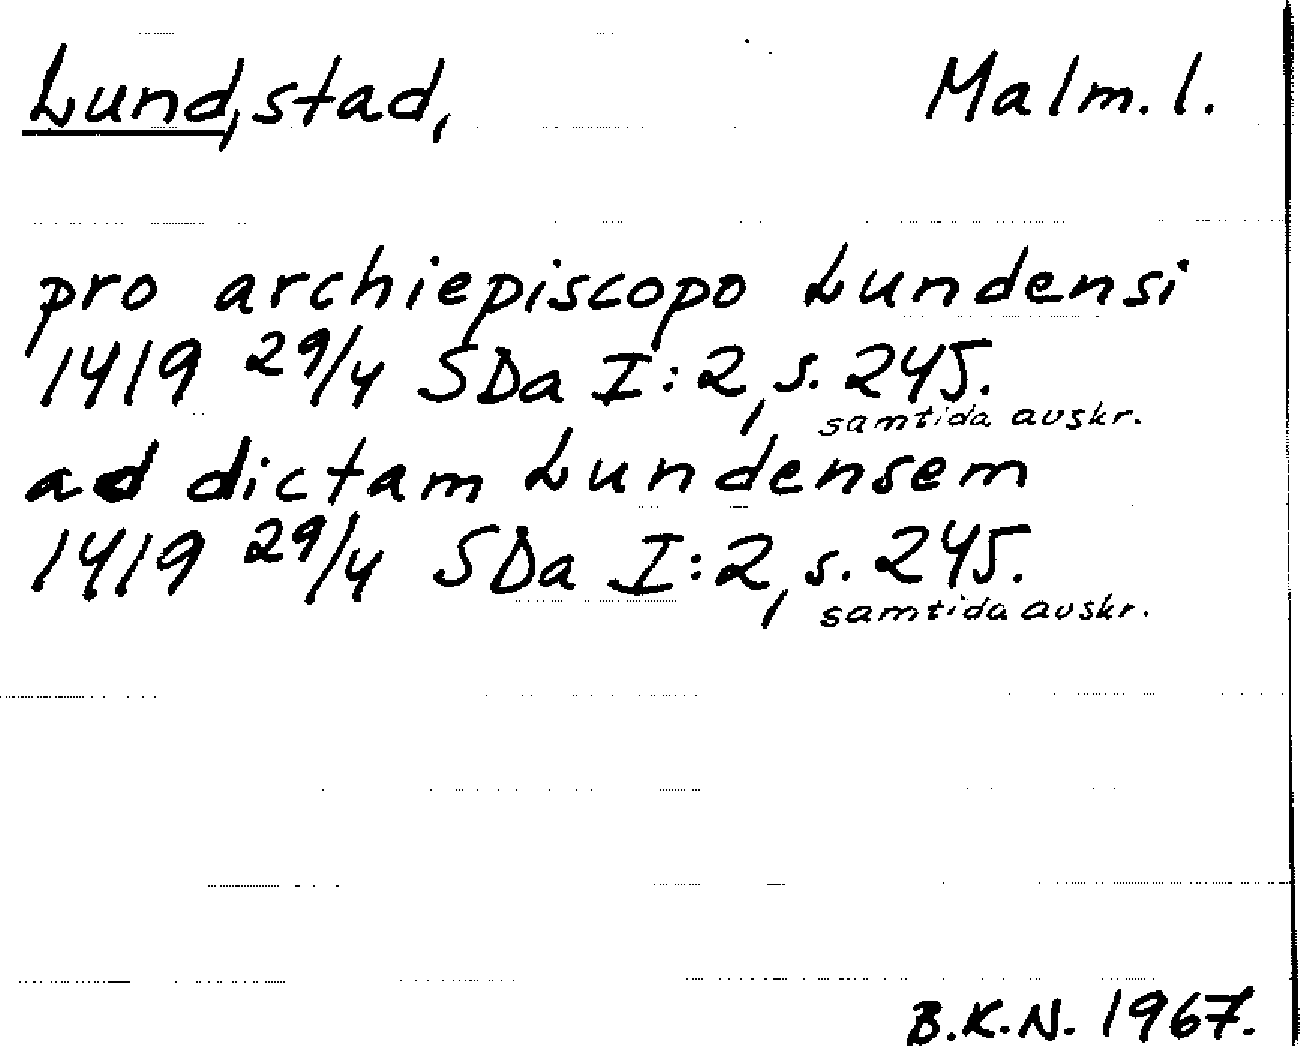 Lund, stad, Malm. l.
pro archiepiscopo Lundensi
1419 29/4 SDa I:2, s. 245.
samtida avskr.
ad dictam Lundensem
1419 29/4 SDa I:2, s. 245.
samtida avskr.
B.K.N. 1967.